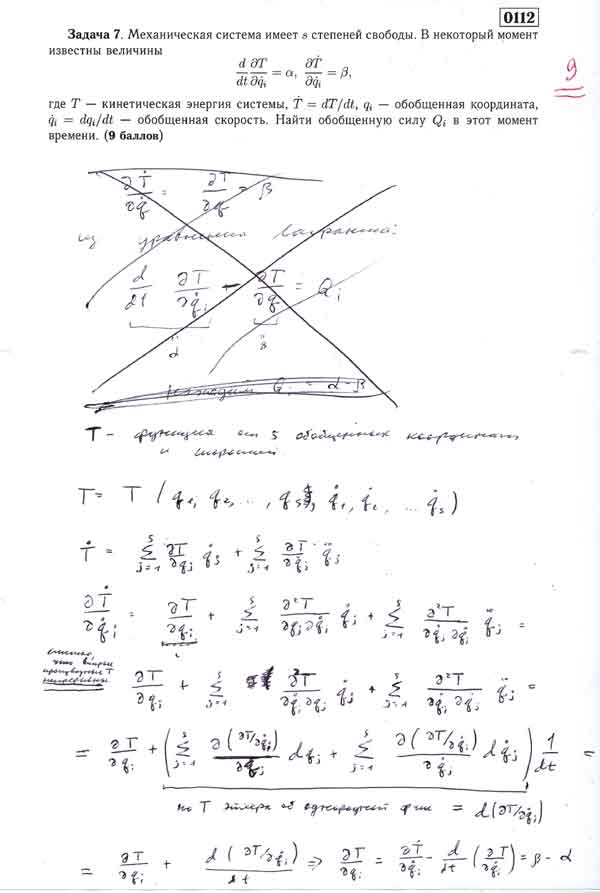 0112
Задача 7. Механическая система имеет s степеней свободы. В некоторый момент
известны величины
d/dt ∂T/∂q̇ᵢ = α, ∂Ṫ/∂q̇ᵢ = β,
9
где T — кинетическая энергия системы, Ṫ = dT/dt, qᵢ — обобщенная координата,
q̇ᵢ = dqᵢ/dt — обобщенная скорость. Найти обобщенную силу Qᵢ в этот момент
времени. (9 баллов)
∂Ṫ/∂q̇ = ∂T/∂q = β
из уравнения Лагранжа:
d/dt ∂T/∂q̇ᵢ - ∂T/∂q = Qᵢ
α β
Qᵢ = α - β
T - функция от s обобщённых координат
и скоростей
T = T (q₁, q₂, ..., qₛ, q̇₁, q̇₂, ... q̇ₛ)
Ṫ = Σⱼ₌₁ˢ ∂T/∂qⱼ q̇ⱼ + Σⱼ₌₁ˢ ∂T/∂q̇ⱼ q̈ⱼ
∂Ṫ/∂q̇ᵢ = ∂T/∂qᵢ + Σⱼ₌₁ˢ ∂²T/∂qⱼ∂q̇ᵢ q̇ⱼ + Σⱼ₌₁ˢ ∂²T/∂q̇ⱼ∂q̇ᵢ q̈ⱼ =
считаю,
что вторые
производные T
непрерывны
∂T/∂qᵢ + Σⱼ₌₁ˢ ∂²T/∂q̇ᵢ∂qⱼ q̇ⱼ + Σⱼ₌₁ˢ ∂²T/∂q̇ᵢ∂q̇ⱼ q̈ⱼ =
= ∂T/∂qᵢ + (Σⱼ₌₁ˢ ∂(∂T/∂q̇ᵢ)/∂qⱼ dqⱼ + Σⱼ₌₁ˢ ∂(∂T/∂q̇ᵢ)/∂q̇ⱼ dq̇ⱼ) 1/dt =
по Т Эйлера об однородной ф-ии = d(∂T/∂q̇ᵢ)
= ∂T/∂qᵢ + d(∂T/∂q̇ᵢ)/dt ⇒ ∂T/∂qᵢ = ∂Ṫ/∂q̇ᵢ - d/dt (∂T/∂q̇ᵢ) = β - α